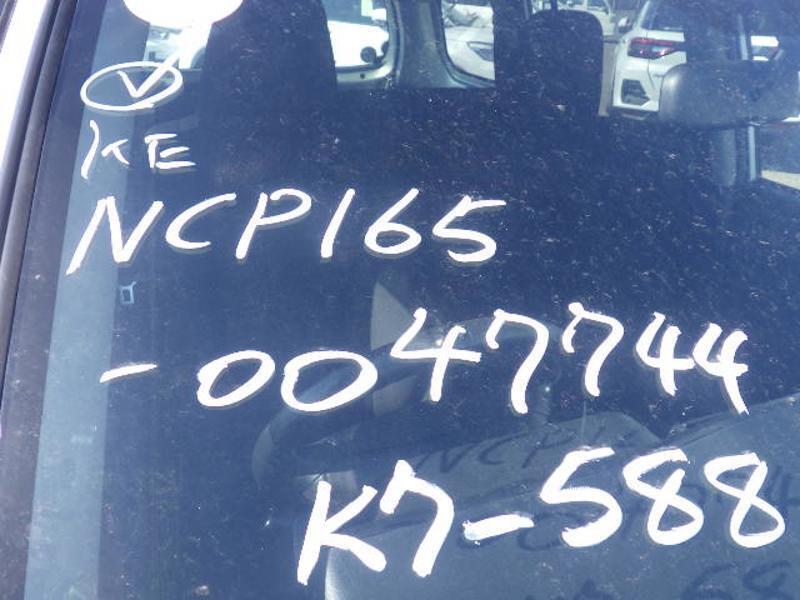 KE
NCP165
-0047744
K7-588